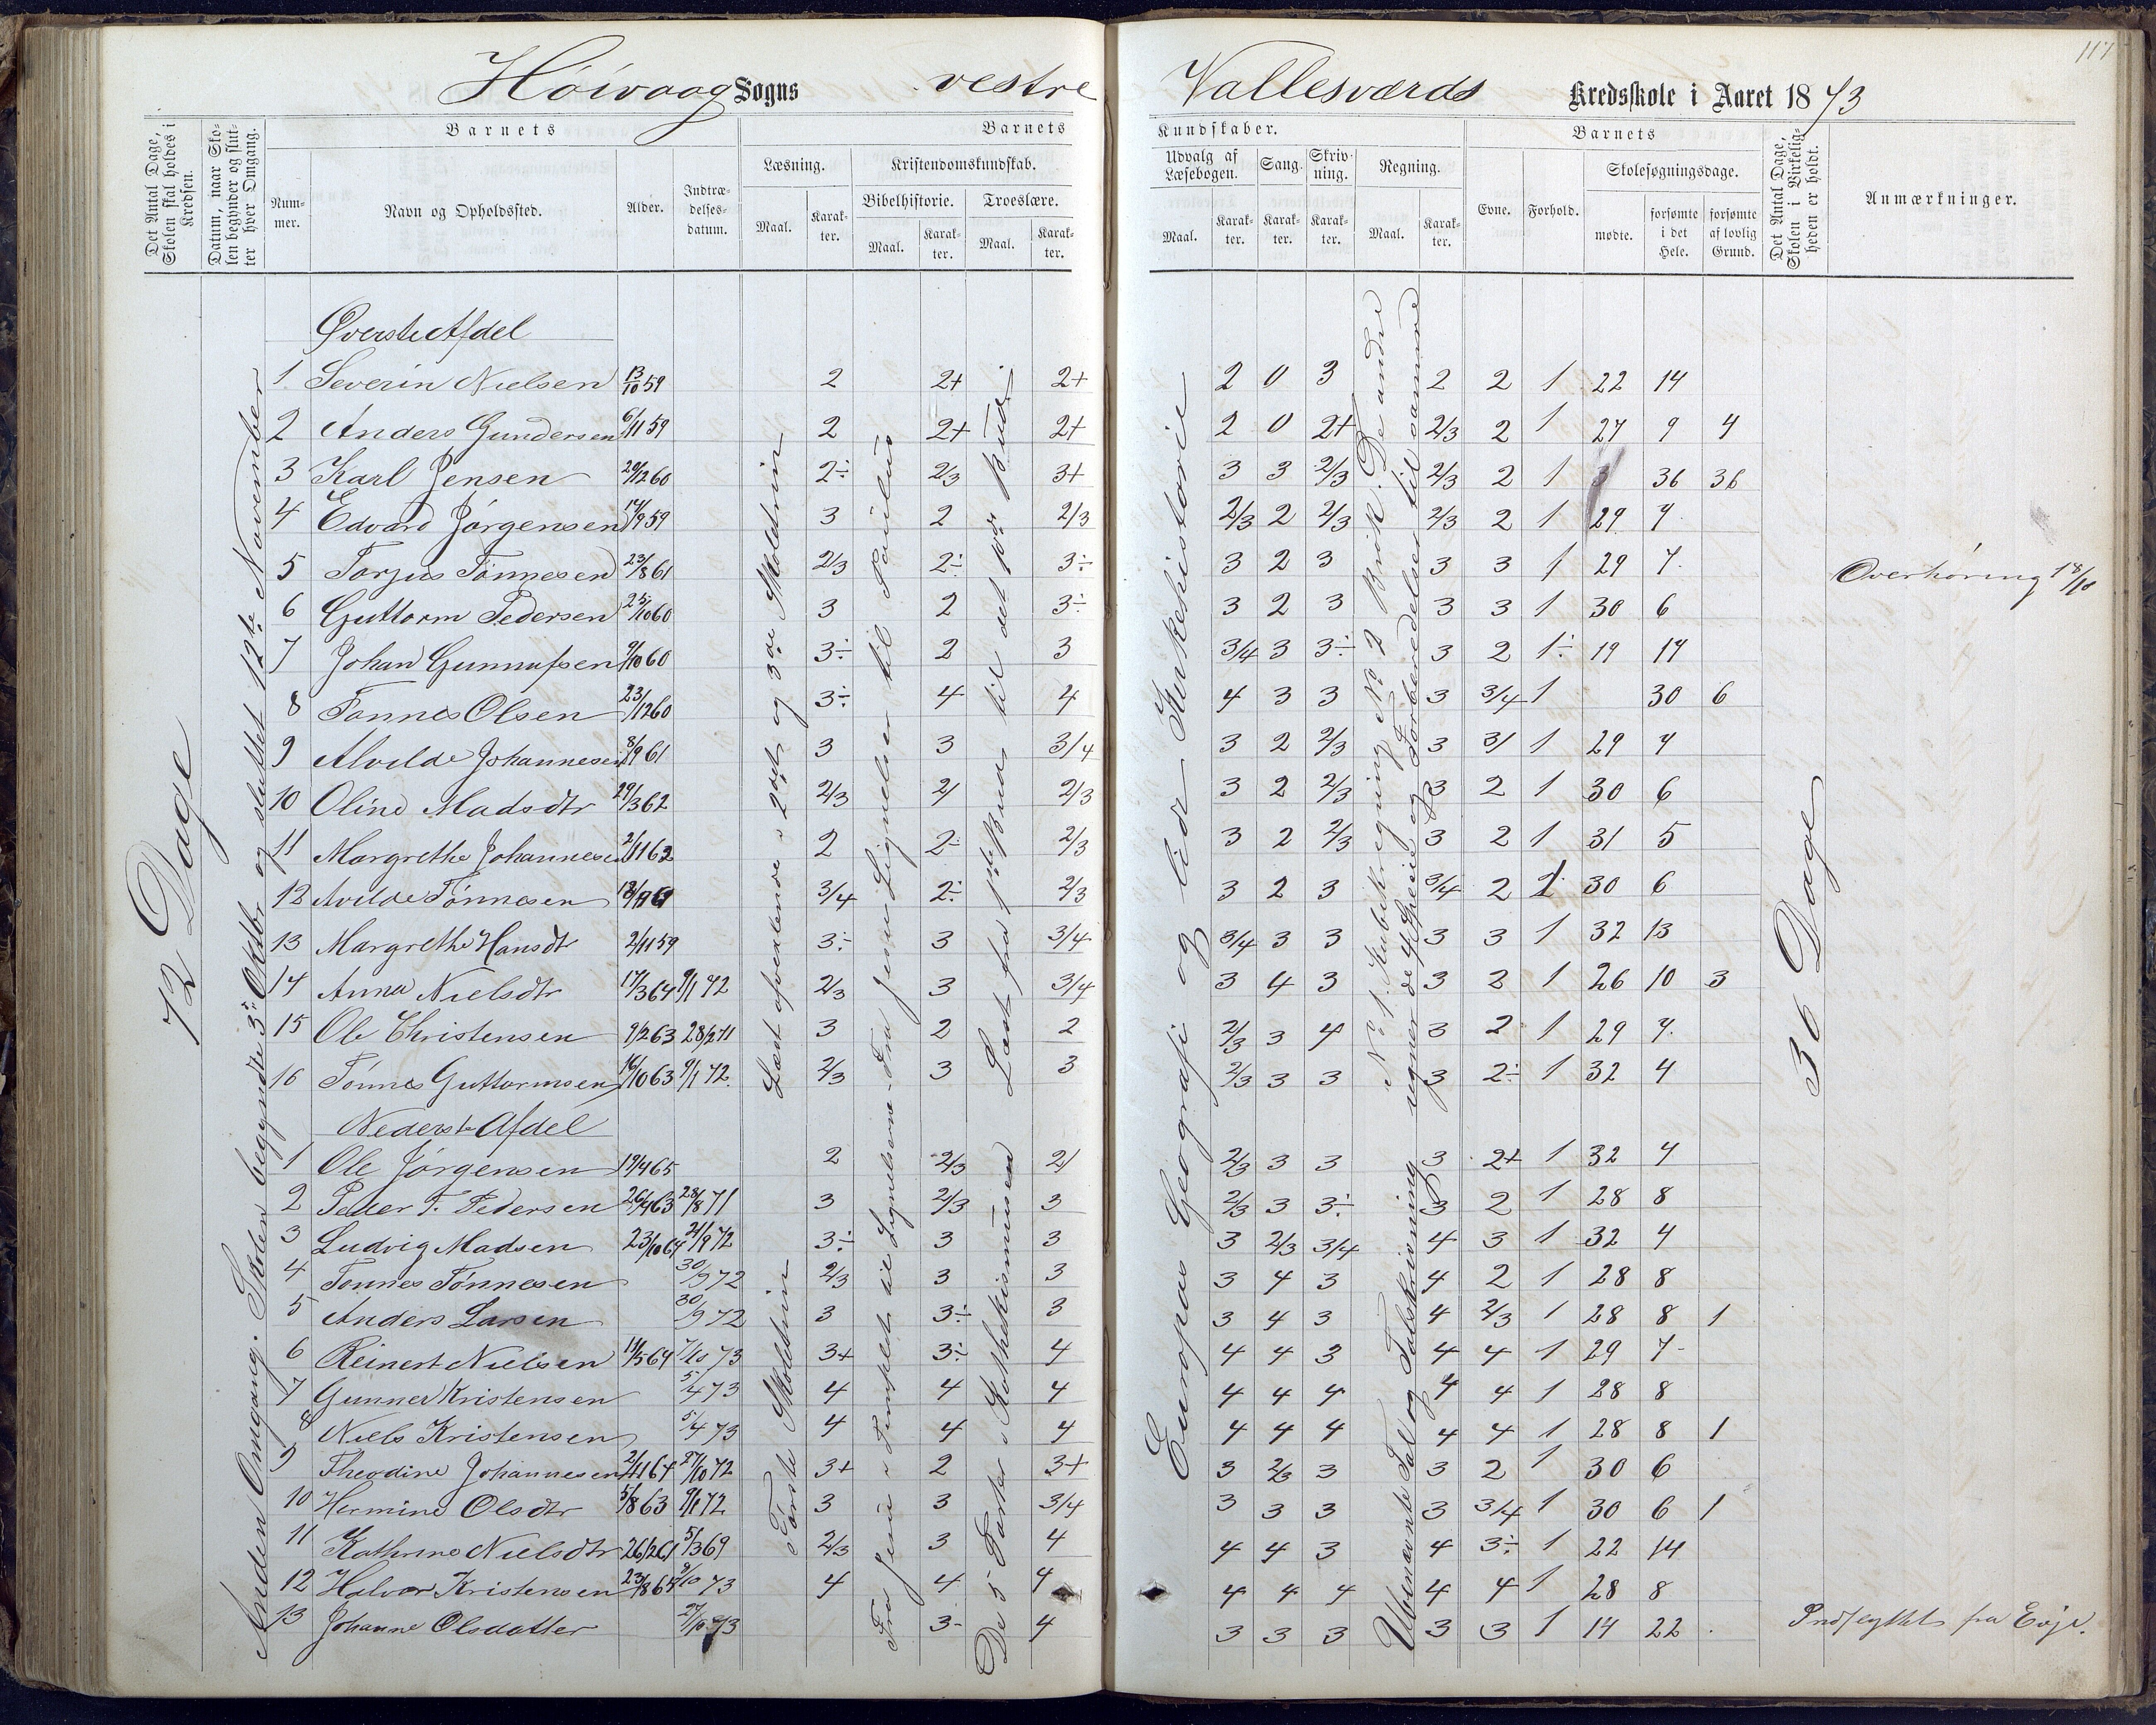 117
Höivaag Sogns vestre Vallesværds Kredsskole i Aaret 1873
Det Antal Dage, Skolen skal holdes i Kredsen.
Datum, naar Skolen begynder og slutter hver Omgang.
Barnets
Nummer.
Navn og Opholdssted.
Alder.
Indtrædelsesdatum.
Barnets
Læsning.
Maal.
Karakter.
Kristendomskundskab.
Bibelhistorie.
Maal.
Karakter.
Troeslære.
Maal.
Karakter.
Kundskaber.
Udvalg af Læsebogen.
Maal.
Karakter.
Sang.
Karakter.
Skrivning.
Karakter.
Regning.
Maal.
Karakter.
Barnets
Evne.
Forhold.
Skolesøgningsdage.
mødte.
forsømte i det Hele.
forsømte af lovlig Grund.
Det Antal Dage, Skolen i Virkeligheden er holdt.
Anmærkninger.
72 Dage
Anden Omgang. Skolen begyndte 3. Oktbr og sluttet 12te November
Læst ofvenlæne i 2det og 3die Skoletrin
Fra Jesu Lignelser til Paulus
Læst fra 1ste Bud til det 10de Bud
Europas Geografi og lidt Kirkehistorie
No 1. Kubikregning No 2 Brøk. De andre
regner de 4 Species og Forberedelser til samme
36 Dage
Øverste Afdel
1 Severin Nielsen 13/10 59 2 2+ 2+ 2 0 3 2 2 1 22 14
2 Anders Gundersen 6/11 59 2 2+ 2+ 2 0 2+ 2/3 2 1 27 9 4
3 Karl Jensen 29/12 60 2÷ 2/3 3+ 3 3 2/3 2/3 2 1 36 36
4 Edvard Jørgensen 14/9 59 3 2 2/3 2/3 2 2/3 2/3 2 1 29 7
5 Torjus Tønnesen 23/8 61 2/3 2÷ 3÷ 3 2 3 3 3 1 29 7 Overhøring 18/10
6 Guttorm Pedersen 25/10 60 3 2 3÷ 3 2 3 3 3 1 30 6
7 Johan Gunnufsen 9/10 60 3÷ 2 3 3/4 3 3÷ 3 2 1÷ 19 17
8 Tønnes Olsen 23/12 60 3÷ 4 4 4 3 3 3 3/4 1 30 6
9 Alvilde Johannesen 8/9 61 3 3 3/4 3 2 2/3 3 3/ 1 29 7
10 Oline Madsdtr 29/3 62 2/3 2/ 2/3 3 2 2/3 3 2 1 30 6
11 Margrethe Johannesen 2/11 62 2 2÷ 2/3 3 2 2/3 3 2 1 31 5
12 Avilde Tønnesen 3/4 2÷ 2/3 3 2 3 3/4 2 1 30 6
13 Margrethe Hansdtr 2/11 59 3÷ 3 3/4 3/4 3 3 3 3 1 32 13
14 Anna Nielsdtr 17/3 64 9/1 72 2/3 3 3/4 3 4 3 3 2 1 26 10 3
15 Ole Christensen 9/2 63 28/2 71 3 2 2 2/3 3 4 3 2 1 29 7
16 Tønnes Guttormsen 16/10 63 9/1 72 2/3 3 3 2/3 3 3 3 2÷ 1 32 4
Nederste Afdel
i Første Skoletrin
Fra Jesu i Templet til Lignelserne
De 5 Parter i Kathekismusen
Ubenævnte Tal og Talskrivning
1 Ole Jørgensen 19/4 65 2 2/3 2/ 2/3 3 3 3 2+ 1 32 4
2 Peder T. Pedersen 26/4 63 28/8 71 3 2/3 3 2/3 3 3÷ 3 2 1 28 8
3 Ludvig Madsen 23/10 64 21/9 72 3÷ 3 3 3 2/3 3/4 4 3 1 32 4
4 Tønnes Tønnesen 30/9 72 2/3 3 3 3 4 3 4 2 1 28 8
5 Anders Larsen 30/9 72 3 3÷ 3 3 4 3 4 2/3 1 28 8 1
6 Reinert Nielsen 11/5 64 7/10 73 3+ 3÷ 4 4 4 3 4 4 1 29 7
7 Gunner Kristensen 5/4 73 4 4 4 4 4 4 4 4 1 28 8
8 Niels Kristensen 5/4 73 4 4 4 4 4 4 4 4 1 28 8 1
9 Theodine Johannesen 2/11 64 27/10 72 3+ 2 3+ 3 2/3 3 3 2 1 30 6
10 Hermine Olsdtr 5/8 63 9/1 72 3 3 3/4 3 3 3 3 3/4 1 30 6 1
11 Kathrine Nielsdtr 26/2 61 5/3 69 2/3 3 4 4 4 3 4 3÷ 1 22 14
12 Halvor Kristensen 23/8 64 9/10 73 4 4 4 4 4 4 4 4 1 28 8
13 Johanne Olsdatter 27/10 73 3- 4 3 3 3 3 3 1 14 22 Indflyttet fra Evje.